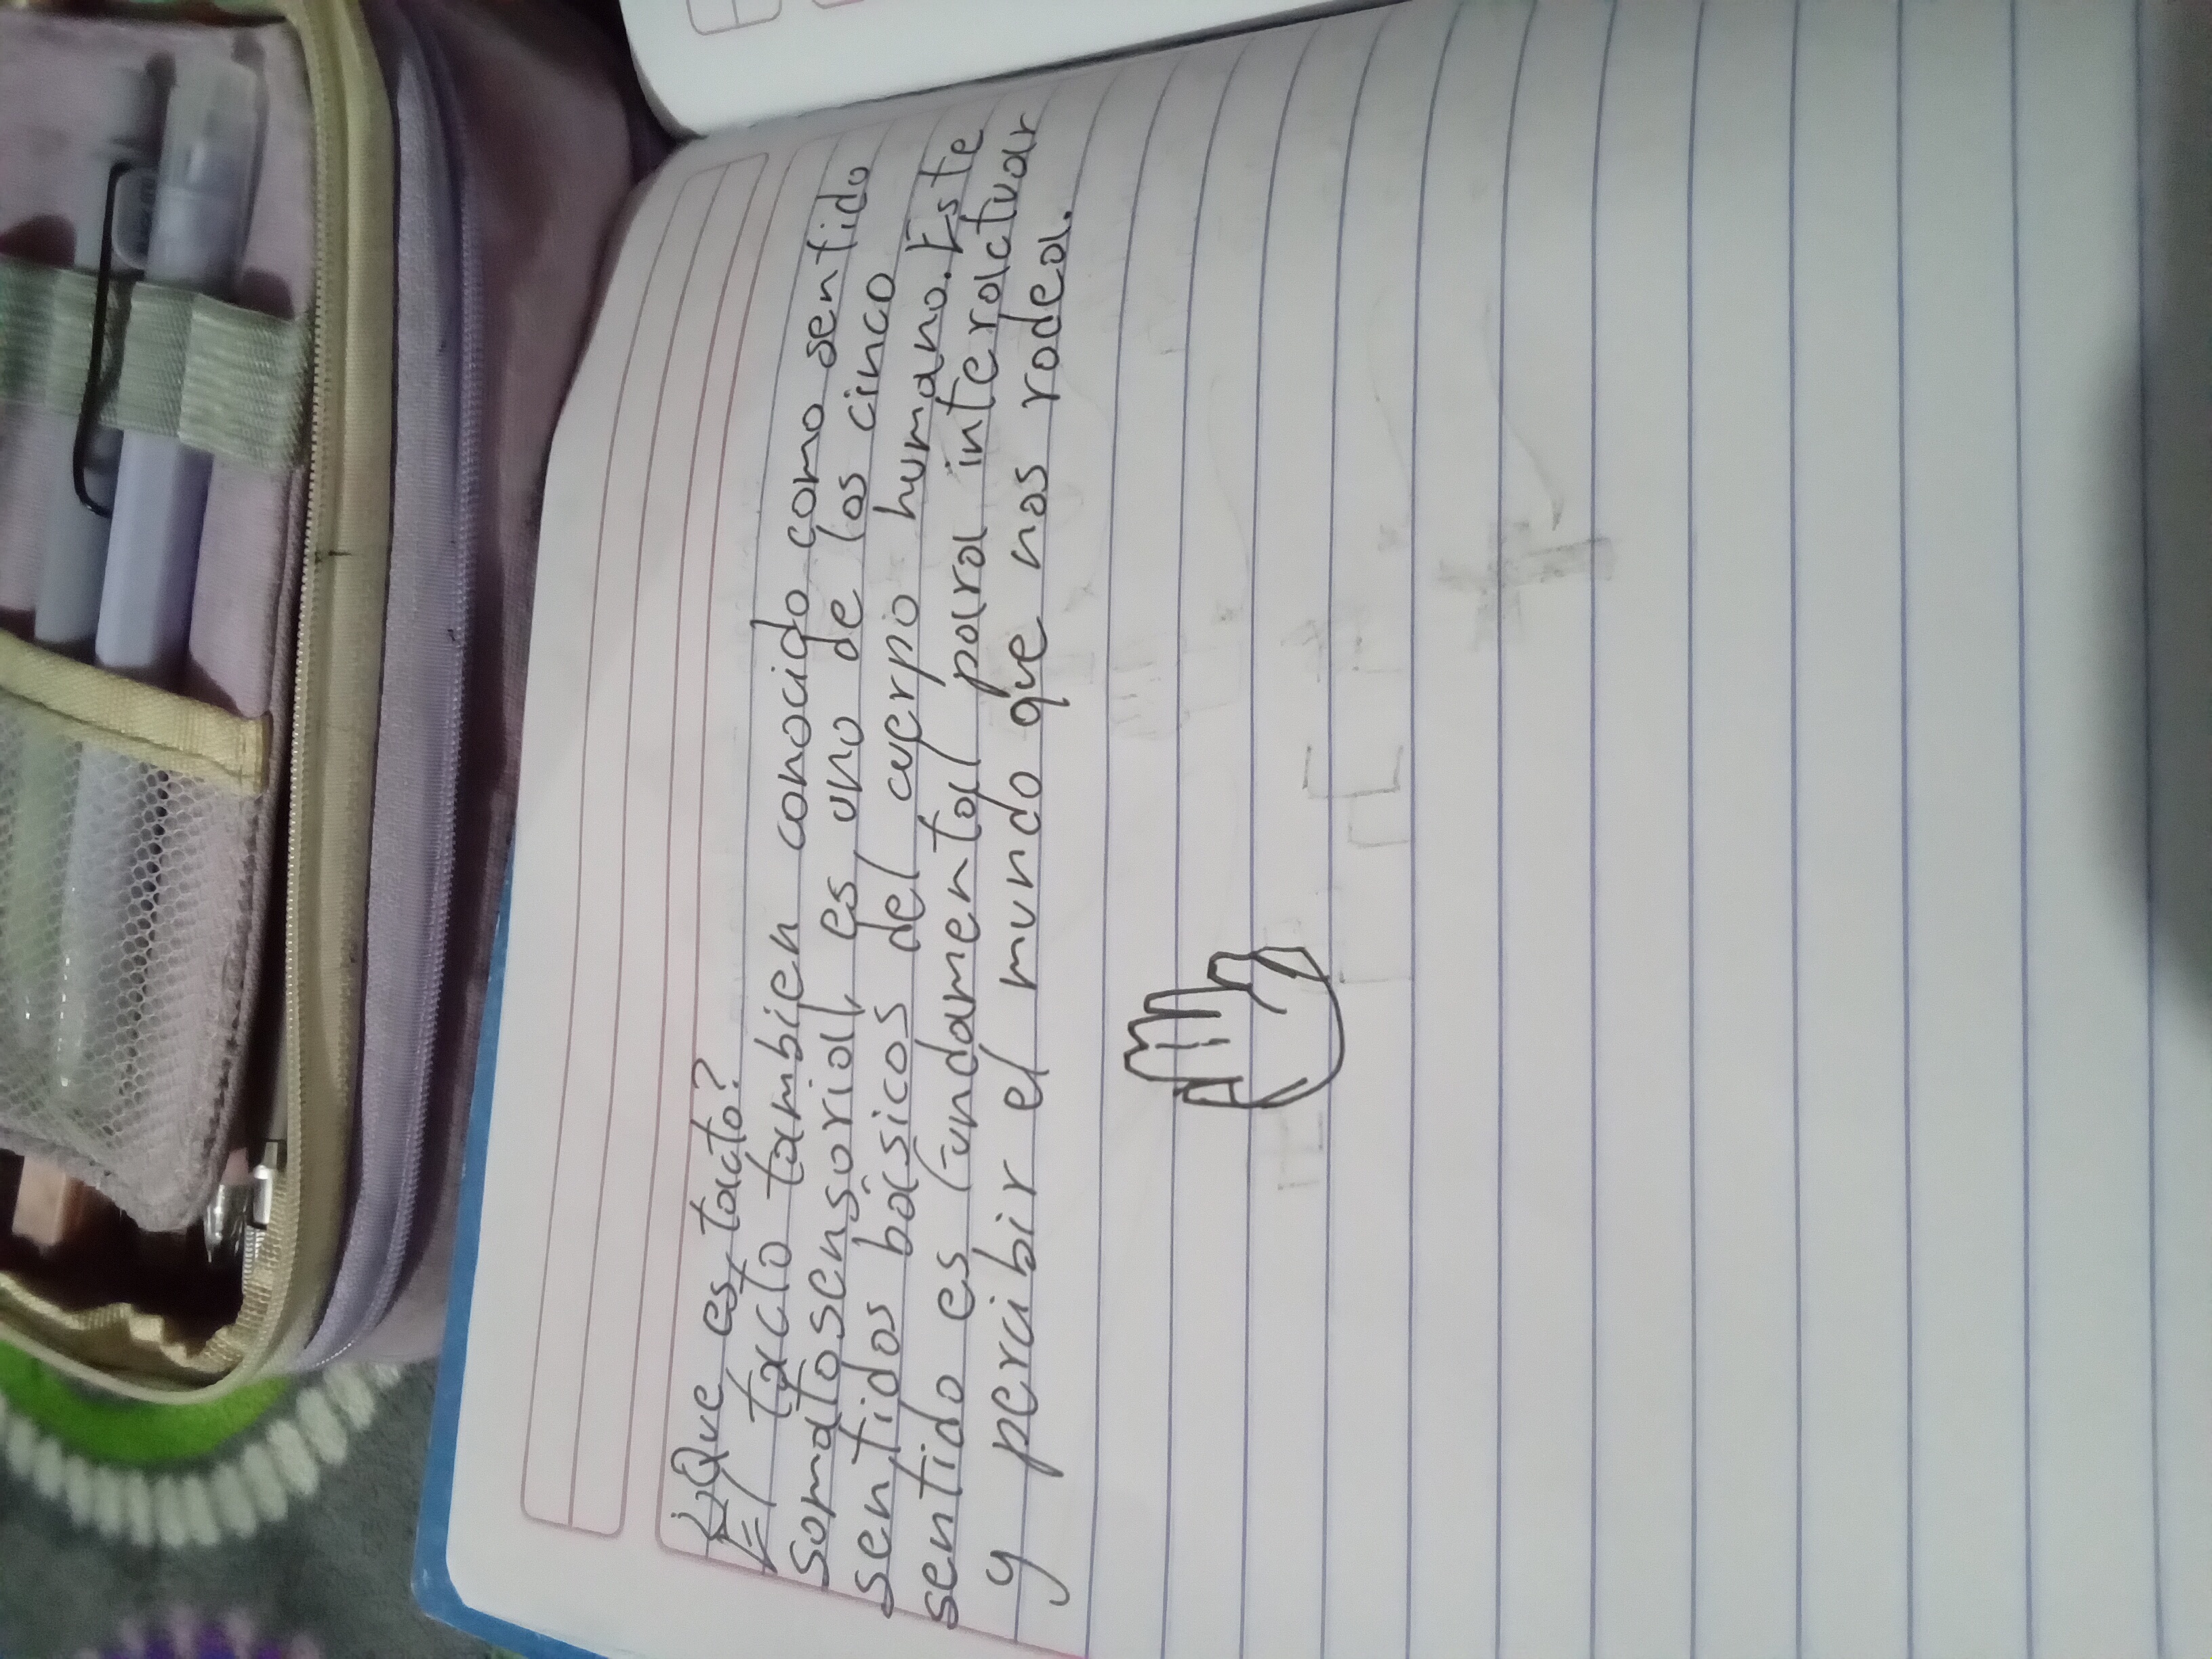 ¿Que es tacto?
El tacto tambien conocido como sentido
somatosensorial, es uno de los cinco
sentidos básicos del cuerpo humano. Este
sentido es fundamental para interactuar
y percibir el mundo que nos rodea.